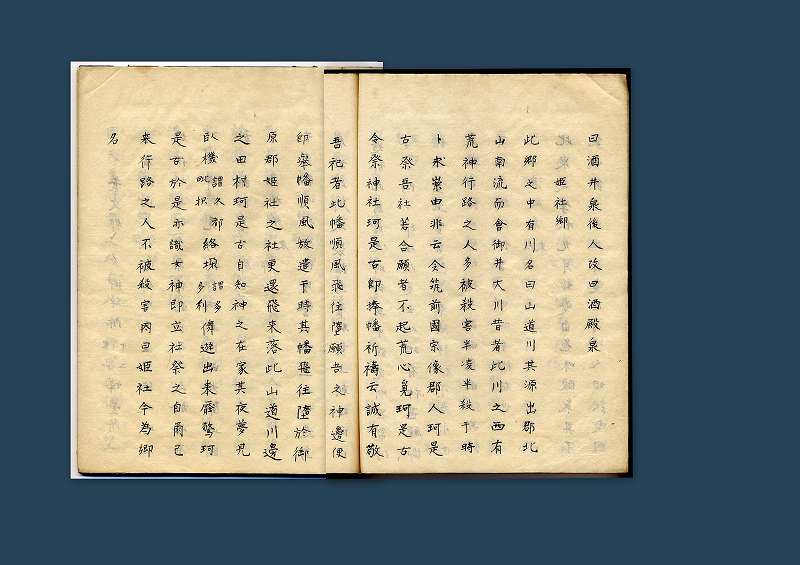 曰酒井泉後人改曰酒殿泉
姫社郷
此郷之中有川名曰山道川其源出郡北
山南流而會御井大川昔者此川之西有
荒神行路之人多被殺害半凌半殺于時
卜求祟由兆云令筑前國宗像郡人珂是
古祭吾社若合願者不起荒心覓珂是古
令祭神社珂是古即捧幡祈禱云誠有敬
吾祀者此幡順風飛往墮願吾之神邊便
即舉幡順風放遣于時其幡飛往墮於御
原郡姫社之社更還飛來落此山道川邊
之田村珂是古自知神之在家其夜夢見
臥機謂久都毗枳絡垜謂多多利儛遊出來壓驚珂
是古於是亦識女神即立社祭之自爾已
來行路之人不被殺害因曰姫社今為郷
名